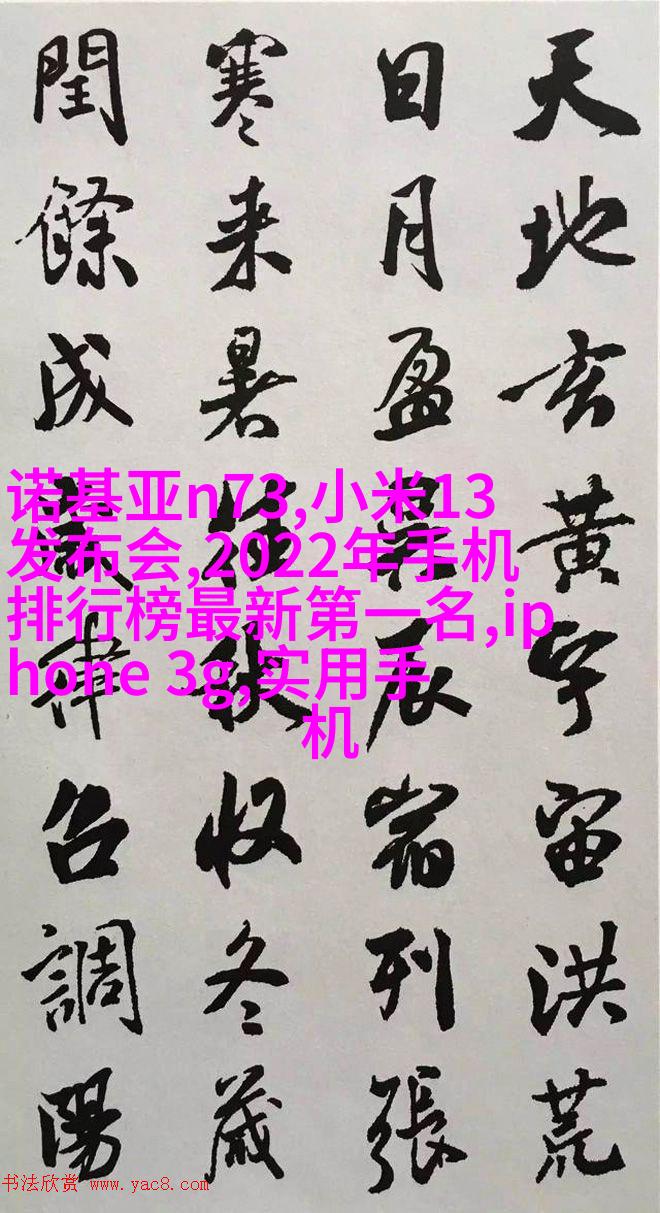 天地玄黃宇宙洪荒
日月盈昃辰宿列張
寒来暑往秋收冬藏
閏餘成歲律召調陽
诺基亚n73,小米13
发布会,2022年手机
排行榜最新第一名,ip
hone 3g,实用手
机
书法欣赏 www.yac8.com